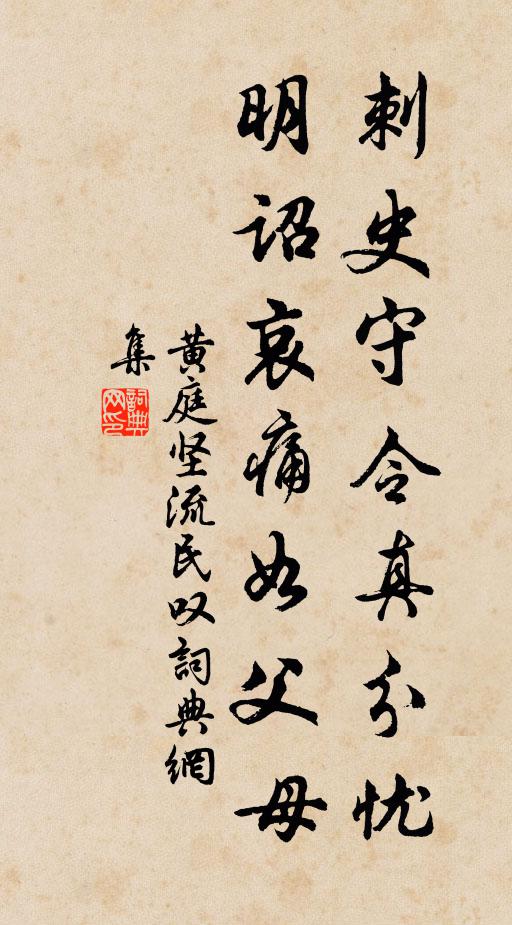 刺史守令真分忧
明诏哀痛如父母
黄庭坚流民叹詞典網
集
詞典网印